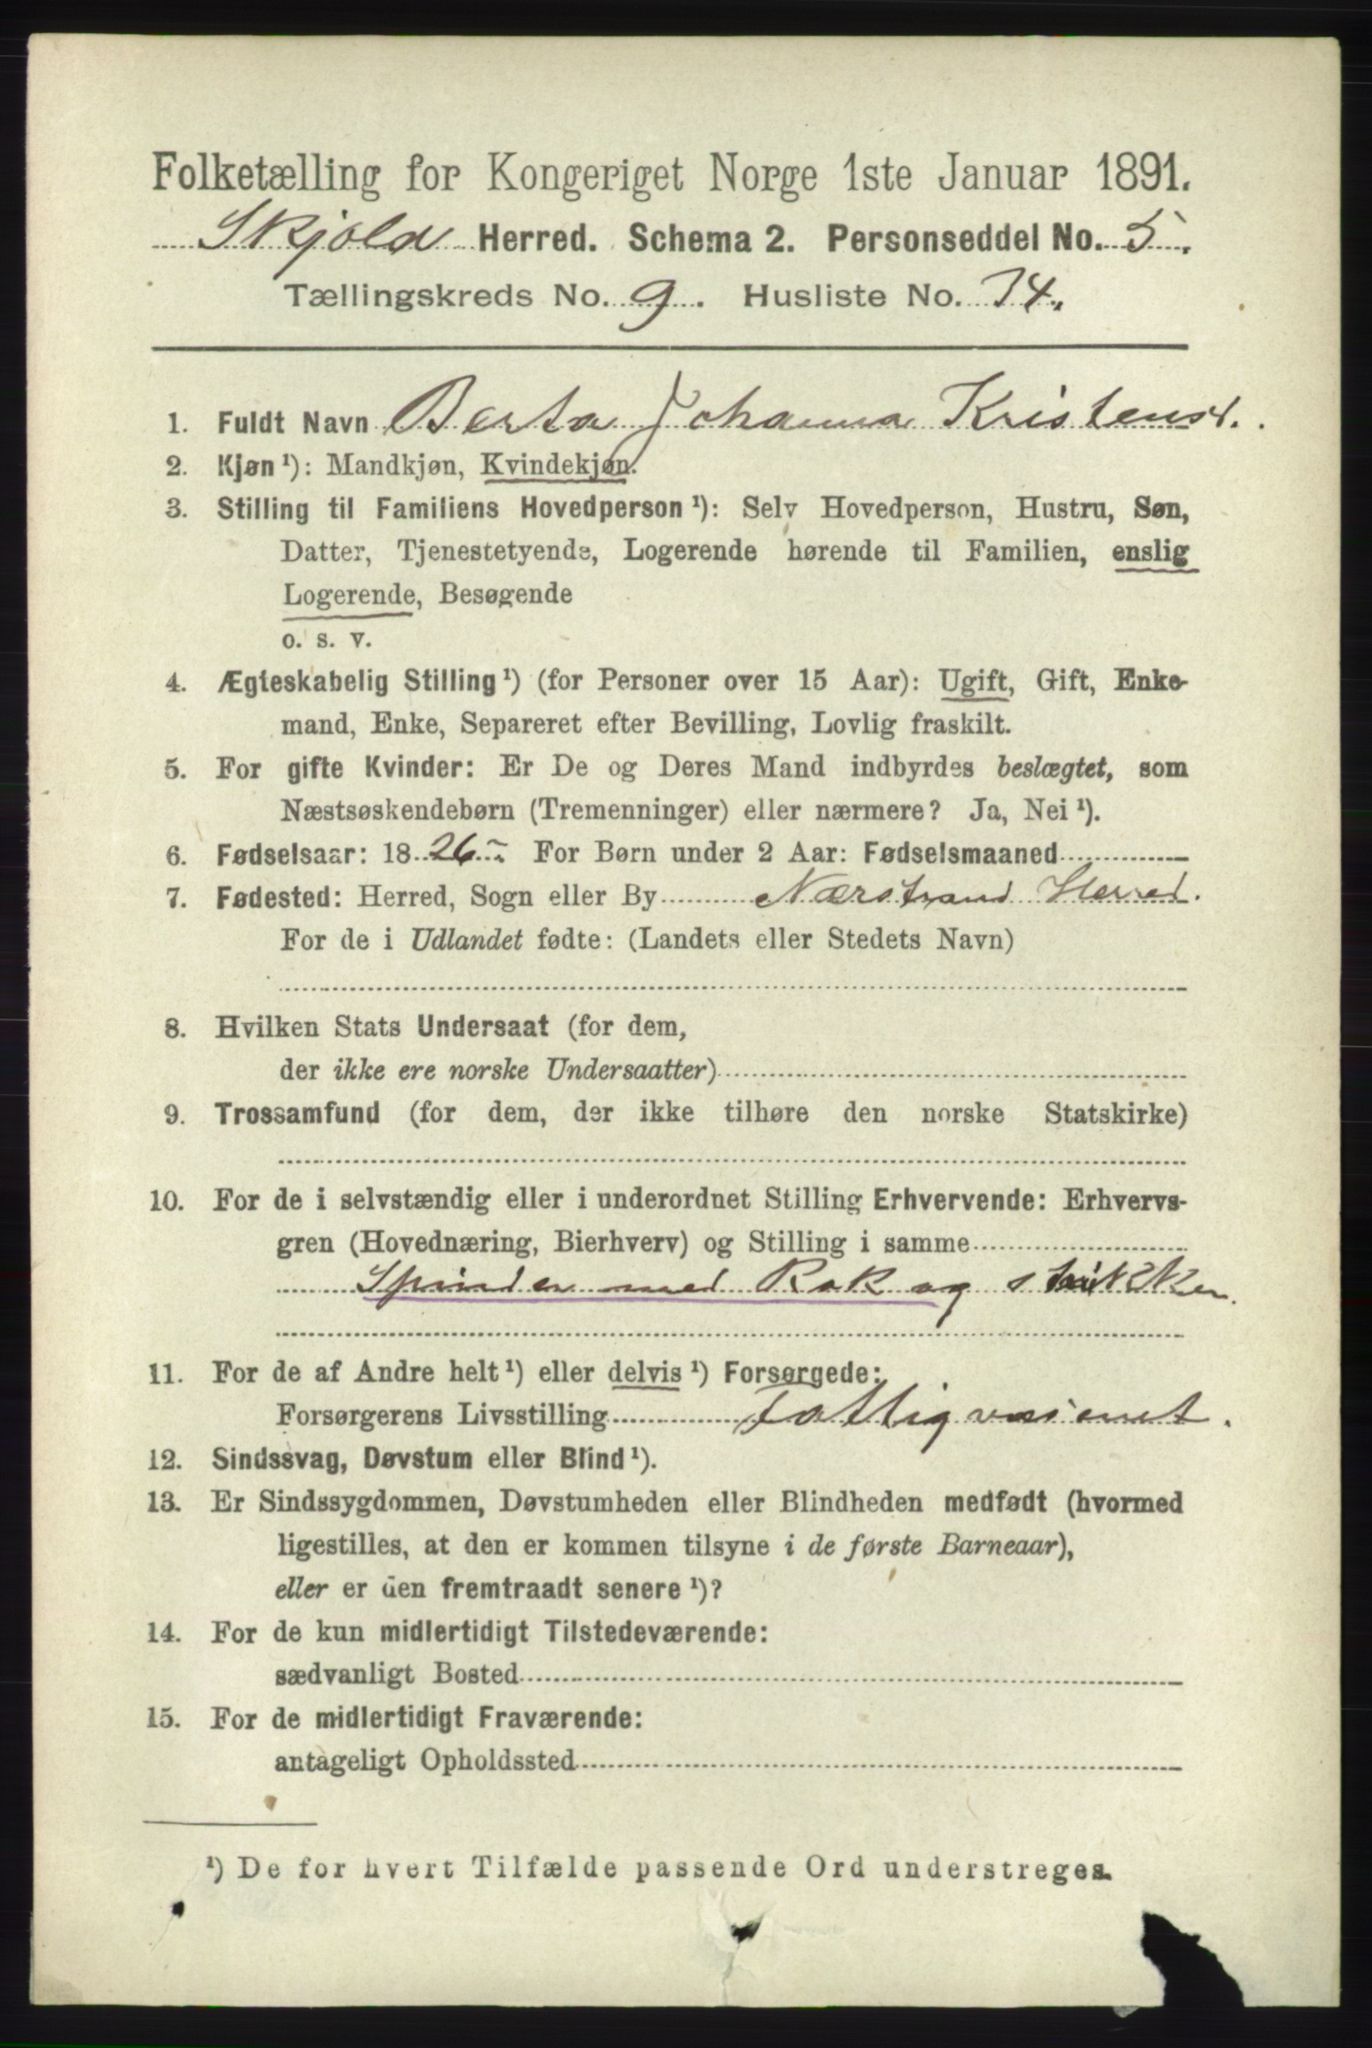 Folketælling for Kongeriget Norge 1ste Januar 1891.
Skjold Herred. Schema 2. Personseddel No. 5.
Tællingskreds No. 9. Husliste No. 74.
1. Fuldt Navn Berta Johanna Kristensd.
2. Kjøn¹): Mandkjøn, Kvindekjøn.
3. Stilling til Familiens Hovedperson¹): Selv Hovedperson, Hustru, Søn,
Datter, Tjenestetyende, Logerende hørende til Familien, enslig
Logerende, Besøgende
o. s. v.
4. Ægteskabelig Stilling¹) (for Personer over 15 Aar): Ugift, Gift, Enke-
mand, Enke, Separeret efter Bevilling, Lovlig fraskilt.
5. For gifte Kvinder: Er De og Deres Mand indbyrdes beslægtet, som
Næstsøskendebørn (Tremenninger) eller nærmere? Ja, Nei¹).
6. Fødselsaar: 1826. For Børn under 2 Aar: Fødselsmaaned
7. Fødested: Herred, Sogn eller By Nærstrand Herred.
For de i Udlandet fødte: (Landets eller Stedets Navn)
8. Hvilken Stats Undersaat (for dem,
der ikke ere norske Undersaatter)
9. Trossamfund (for dem, der ikke tilhøre den norske Statskirke)
10. For de i selvstændig eller i underordnet Stilling Erhvervende: Erhvervs-
gren (Hovednæring, Bierhverv) og Stilling i samme
Spinder med Rok og strikker.
11. For de af Andre helt¹) eller delvis¹) Forsørgede:
Forsørgerens Livsstilling Fattigvæsenet.
12. Sindssvag, Døvstum eller Blind¹).
13. Er Sindssygdommen, Døvstumheden eller Blindheden medfødt (hvormed
ligestilles, at den er kommen tilsyne i de første Barneaar),
eller er den fremtraadt senere¹)?
14. For de kun midlertidigt Tilstedeværende:
sædvanligt Bosted
15. For de midlertidigt Fraværende:
antageligt Opholdssted
¹) De for hvert Tilfælde passende Ord understreges.